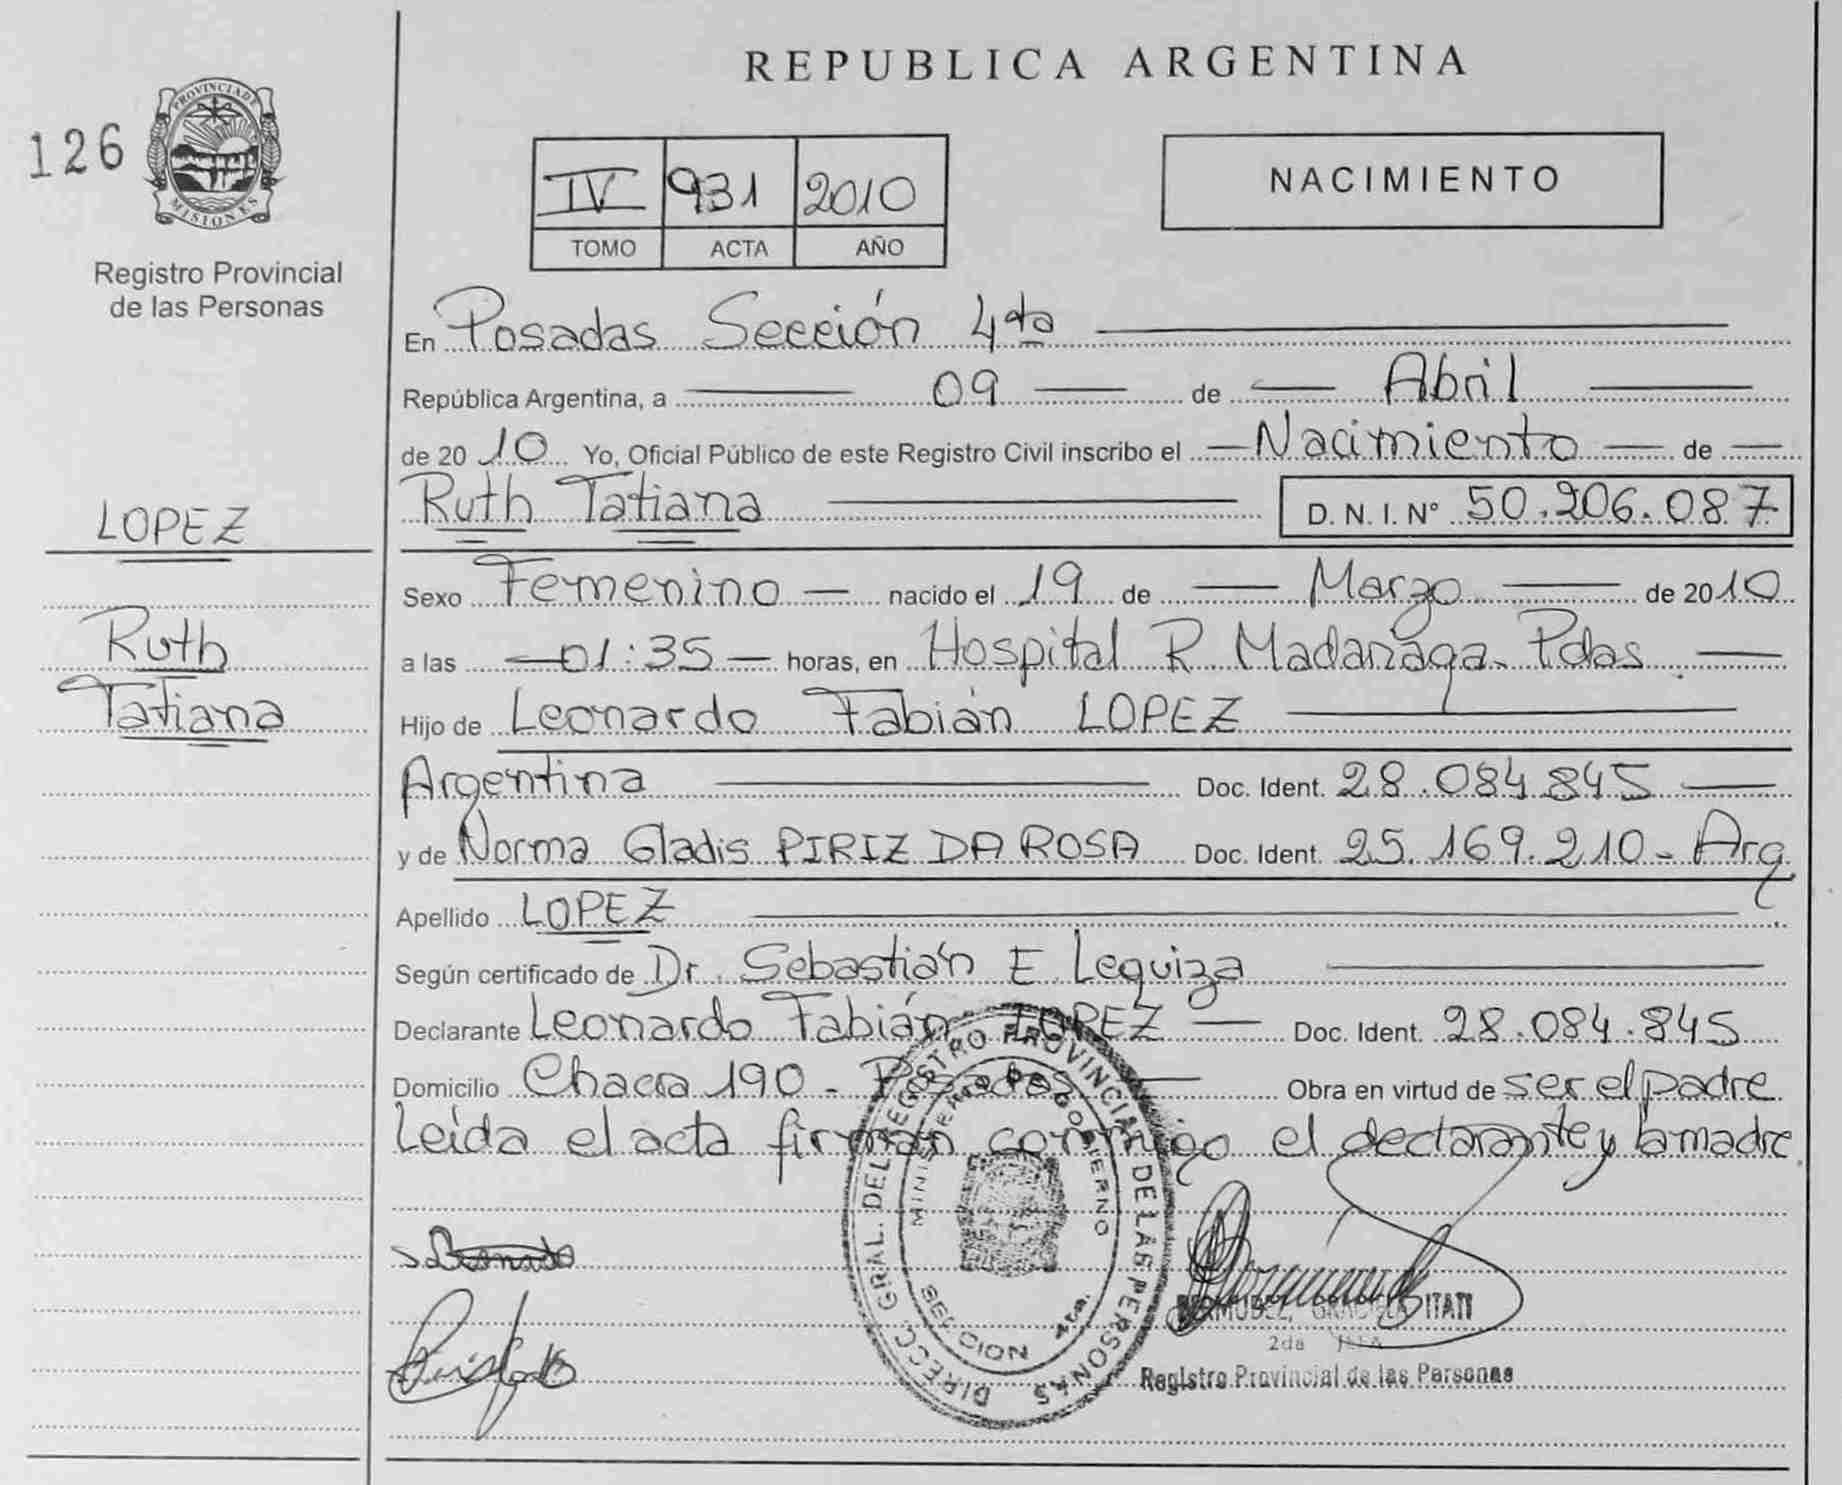 REPUBLICA ARGENTINA
126
PROVINCIA DE
MISIONES
Registro Provincial
de las Personas
IV 931 2010
TOMO ACTA AÑO
NACIMIENTO
En Posadas Sección 4ta
República Argentina, a 09 de Abril
de 2010 Yo, Oficial Público de este Registro Civil inscribo el Nacimiento de
Ruth Tatiana D. N. I. N° 50.206.087
LOPEZ
Ruth
Tatiana
Sexo Femenino nacido el 19 de Marzo de 2010
a las 01:35 horas, en Hospital R. Madariaga. Pdas.
Hijo de Leonardo Fabián LOPEZ
Argentina Doc. Ident. 28.084.845
y de Norma Gladis PIRIZ DA ROSA Doc. Ident. 25.169.210 - Arg
Apellido LOPEZ
Según certificado de Dr. Sebastián E. Leguiza
Declarante Leonardo Fabián LOPEZ Doc. Ident. 28.084.845
Domicilio Chacra 190 - Posadas Obra en virtud de ser el padre
Leída el acta firman conmigo el declarante y la madre.
DIRECC. GRAL. DEL REGISTRO PROVINCIAL DE LAS PERSONAS
MINISTERIO DE GOBIERNO
SECCION 4ta.
ITATI
2da
Registro Provincial de las Personas